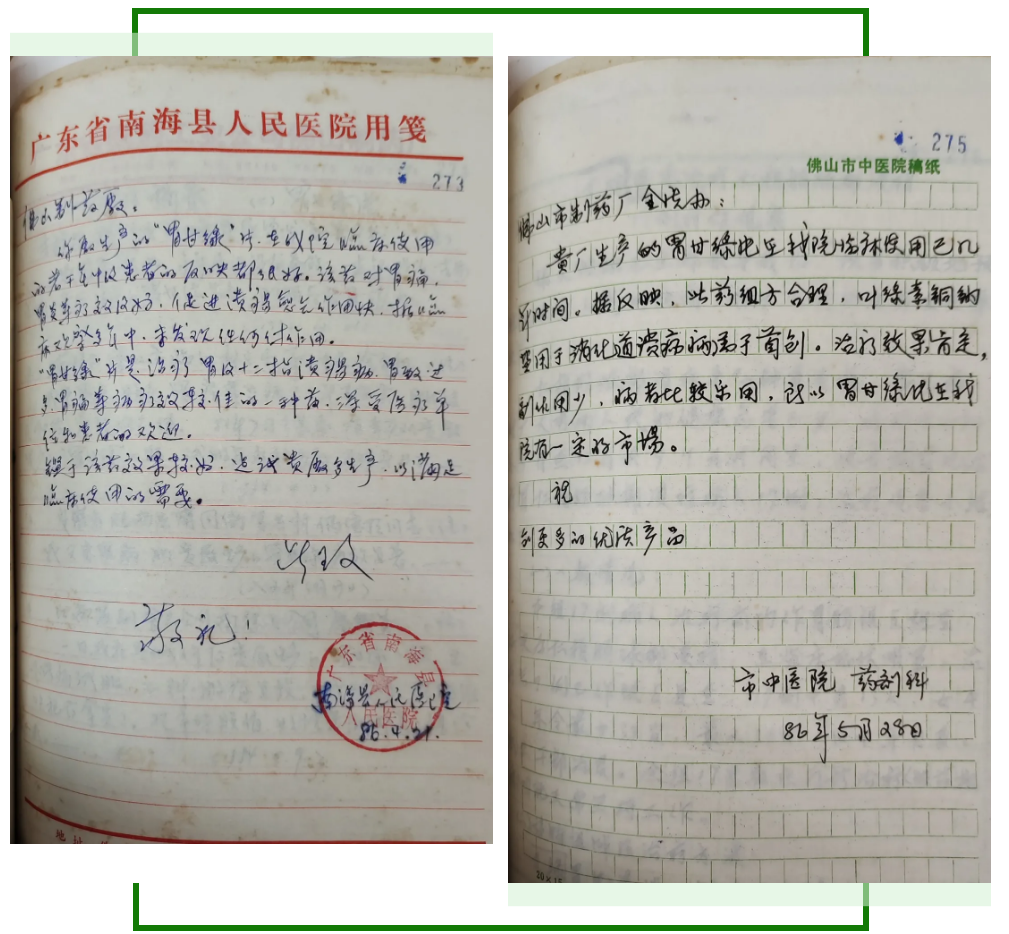 广东省南海县人民医院用笺
273
佛山制药厂:
你厂生产的“胃甘绿”片,在我院临床使用
的若干年中,患者的反映都很好。该药对胃痛,
胃炎等疗效很好,促进溃疡愈合作用快,据临
床观察多年中,未发现任何付作用。
“胃甘绿”片是治疗胃及十二指溃疡病,胃酸过
多,胃痛等病疗效较佳的一种药,深受医疗单
位和患者的欢迎。
鉴于该药效果较好,建议贵厂多生产,以满足
临床使用的需要。
此致
敬礼!
广东省南海县
人民医院
南海县人民医院
86.4.21.
地址
275
佛山市中医院稿纸
佛山市制药厂全质办:
贵厂生产的胃甘绿片在我院临床使用已几
年时间。据反映,此药组方合理,叶绿素铜钠
盐用于消化道溃疡病属于首创。治疗效果肯定,
副作用少,病者比较乐用,所以胃甘绿片在我
院有一定的市场。
祝
创更多的优质产品
市中医院 药剂科
86年5月28日
20×15